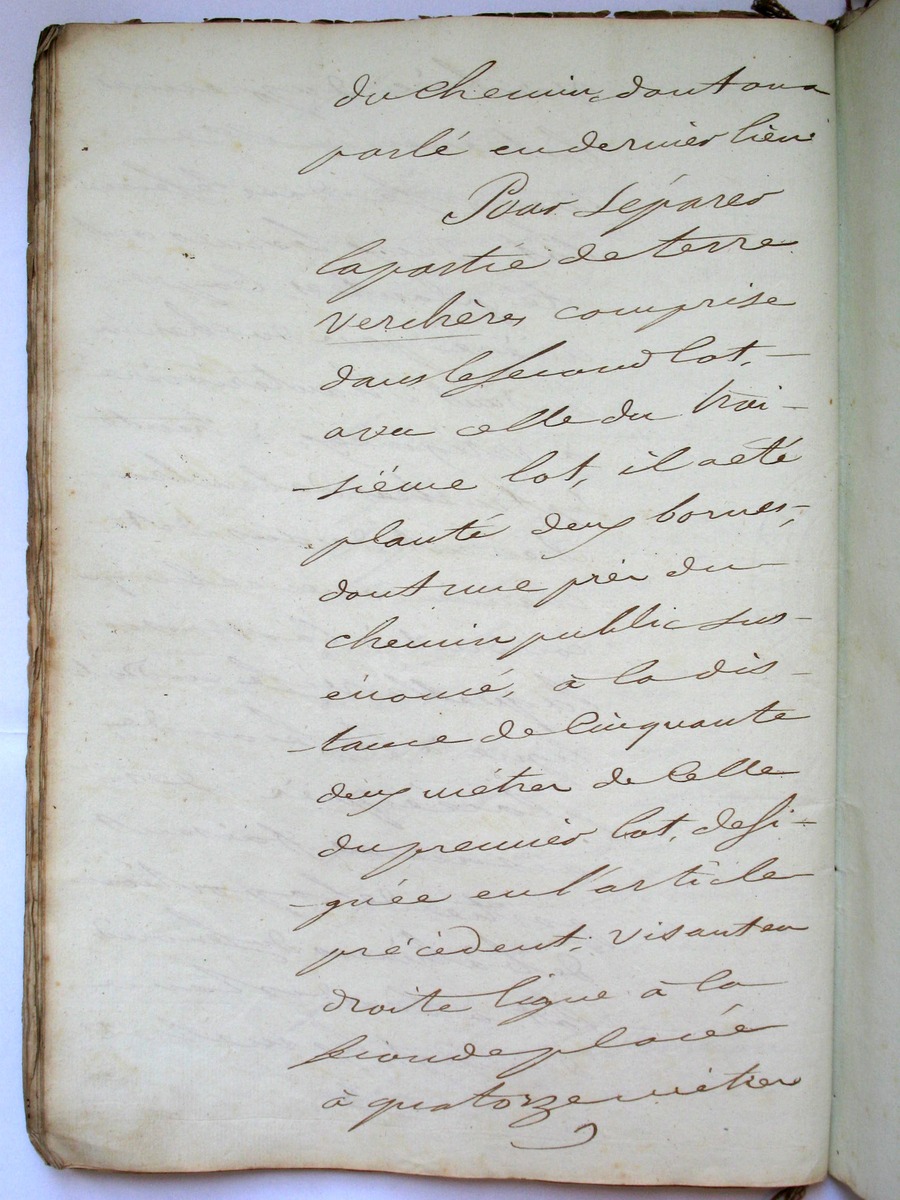 du chemin, dont on a
parlé en dernier lieu
Pour séparer
la partie de terre
verchères comprise
dans le second lot, –
avec celle du troi –
– sième lot, il a été
planté deux bornes,
dont une près du
chemin public sus –
énoncé, à la dis –
– tance de Cinquante
deux mètres de Celle
du premier lot, dési –
– gnée en l'article
précédent, visant en
droite ligne à la
seconde placée
à quatorze mètres